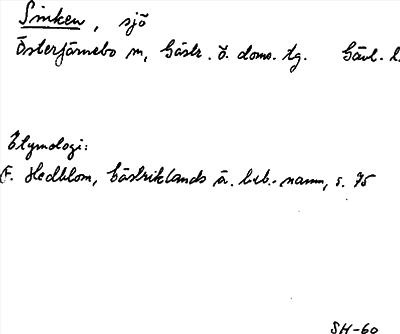 Sinken, sjö
Österfärnebo sn, Gästr. ö. doms. tg. Gävl. l.
Etymologi:
F. Hedblom, Gästriklands ä. beb.-namn, s. 95
SH-60